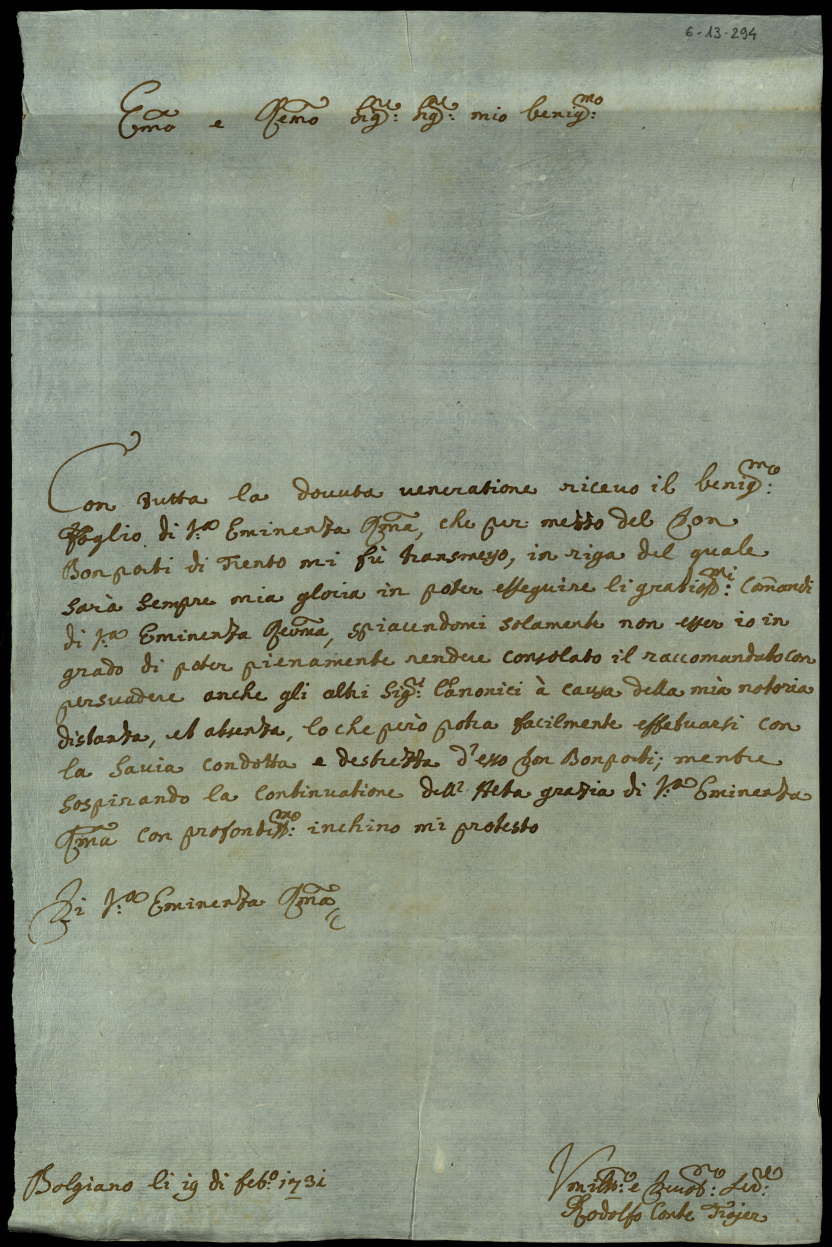 6-13-294
Em̃o e Rem̃o Sig:re Sig:re mio benig:mo
Con tutta la douuta ueneratione riceuo il benig:mo
foglio di V:ra Eminenza Rm̃a, che per mezzo del Don
Bonporti di Trento mi fù transmesso, in riga del quale
sarà sempre mia gloria in poter esseguire li gratioss:mi Com̃andi
di V:ra Eminenza Reum̃a, spiacendomi solamente non esser io in
grado di poter pienamente rendere consolato il raccomandato con
persuadere anche gli altri Sig:ri Canonici à causa della mia notoria
distanza, et absenza, lo che però potra facilmente effetuarsi con
la Sauia condotta e destrezza d'esso Don Bonporti; mentre
sospirando la Continuatione dell' Alta grazia di V:ra Eminenza
Rm̃a con profondiss:mo inchino mi protesto
Di V:ra Eminenza Rm̃a
Bolgiano li 19 di feb:o 1731
Vmiliss:o e Deuot:mo Ser:re
Rodolfo Conte Trojer